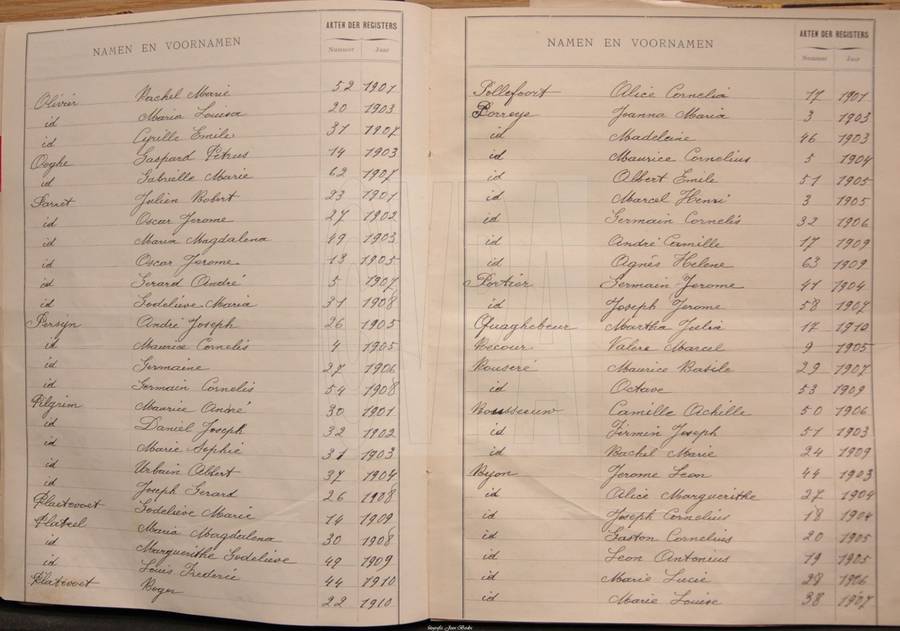 NAMEN EN VOORNAMEN AKTEN DER REGISTERS
Nummer Jaar
Olivier Rachel Marie 52 1901
id Maria Louisa 20 1903
id Cyrille Emile 31 1907
Ooghe Gaspard Petrus 14 1903
id Gabrielle Marie 62 1907
Paret Julien Robert 23 1901
id Oscar Jerome 27 1902
id Maria Magdalena 49 1903
id Oscar Jerome 13 1905
id Gerard André 5 1907
id Godelieve Marie 31 1908
Persyn André Joseph 26 1905
id Maurice Cornelis 4 1905
id Germaine 27 1906
id Germain Cornelis 54 1908
Pilgrim Maurice André 30 1901
id Daniël Joseph 32 1902
id Marie Sophie 31 1903
id Urbain Albert 37 1904
id Joseph Gerard 26 1908
Plaetevoet Godelieve Marie 14 1909
Plateel Maria Magdalena 30 1908
id Marguerithe Godelieve 49 1909
id Louis Frederic 44 1910
Plaetevoet Roger 22 1910
NAMEN EN VOORNAMEN AKTEN DER REGISTERS
Nummer Jaar
Pollefoort Alice Cornelia 17 1901
Porreye Joanna Maria 3 1903
id Madeleine 46 1903
id Maurice Cornelius 5 1904
id Albert Emile 51 1905
id Marcel Henri 3 1905
id Germain Cornelis 32 1906
id André Camille 17 1909
id Agnès Helene 63 1909
Portier Germain Jerome 41 1904
id Joseph Jerome 58 1907
Quaghebeur Martha Julia 12 1910
Recour Valere Marcel 9 1905
Rouseré Maurice Basile 29 1907
id Octave 53 1909
Rousseeuw Camille Achille 50 1906
id Firmin Joseph 51 1903
id Rachel Marie 24 1909
Ryon Jerome Leon 44 1903
id Alice Marguerithe 27 1904
id Joseph Cornelius 18 1904
id Gaston Cornelius 20 1905
id Leon Antonius 19 1905
id Marie Lucie 28 1906
id Marie Louise 38 1907